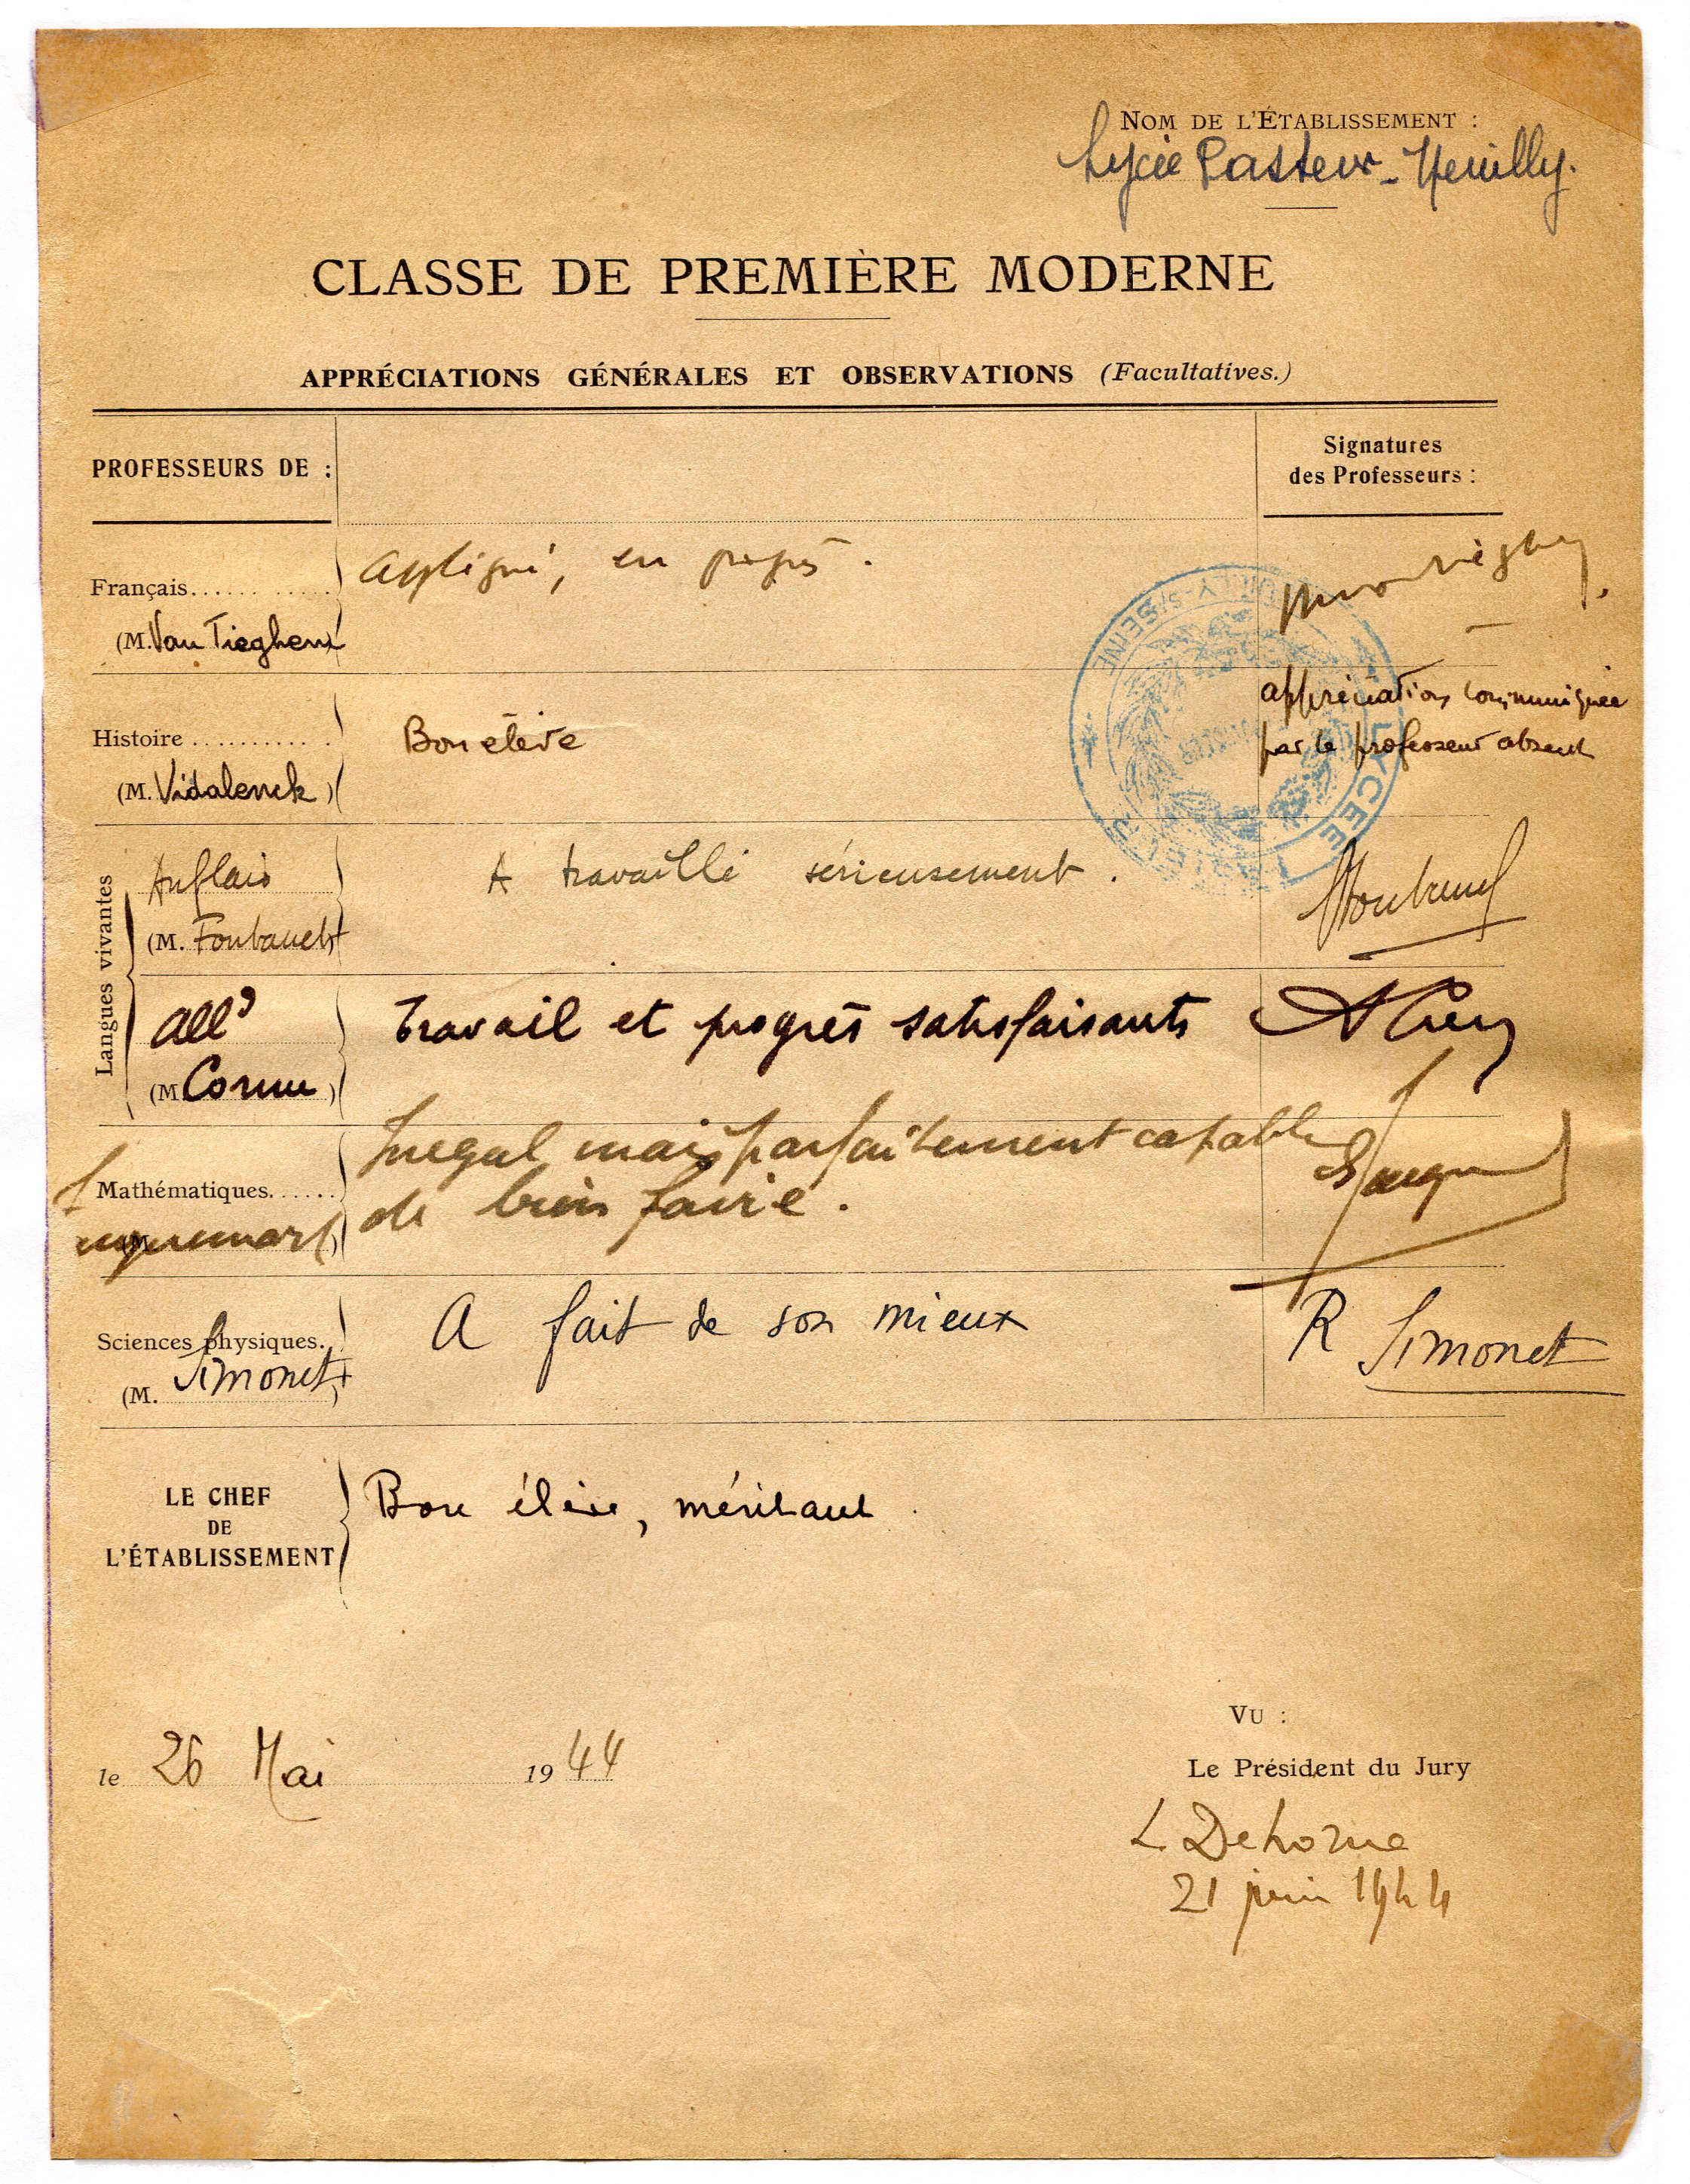 NOM DE L'ÉTABLISSEMENT :
Lycée Pasteur - Neuilly.
CLASSE DE PREMIÈRE MODERNE
APPRÉCIATIONS GÉNÉRALES ET OBSERVATIONS (Facultatives.)
PROFESSEURS DE :
Signatures
des Professeurs :
Français
appliqué, en progrès.
(M. Van Tieghem)
Histoire
Bon élève
appréciation communiquée
par le professeur absent
(M. Vidalenck)
LYCÉE PASTEUR NEUILLY-S/S-SEINE
Langues vivantes
Anglais
A travaillé sérieusement.
(M.
All^d
Travail et progrès satisfaisants
(M Cornu)
Mathématiques
Inégal mais parfaitement capable
de bien faire.
Sciences physiques.
A fait de son mieux
R Simonet
(M. Simonet)
LE CHEF
DE
L'ÉTABLISSEMENT
Bon élève, méritant
le 26 Mai 1944
VU :
Le Président du Jury
L Dehorne
21 juin 1944